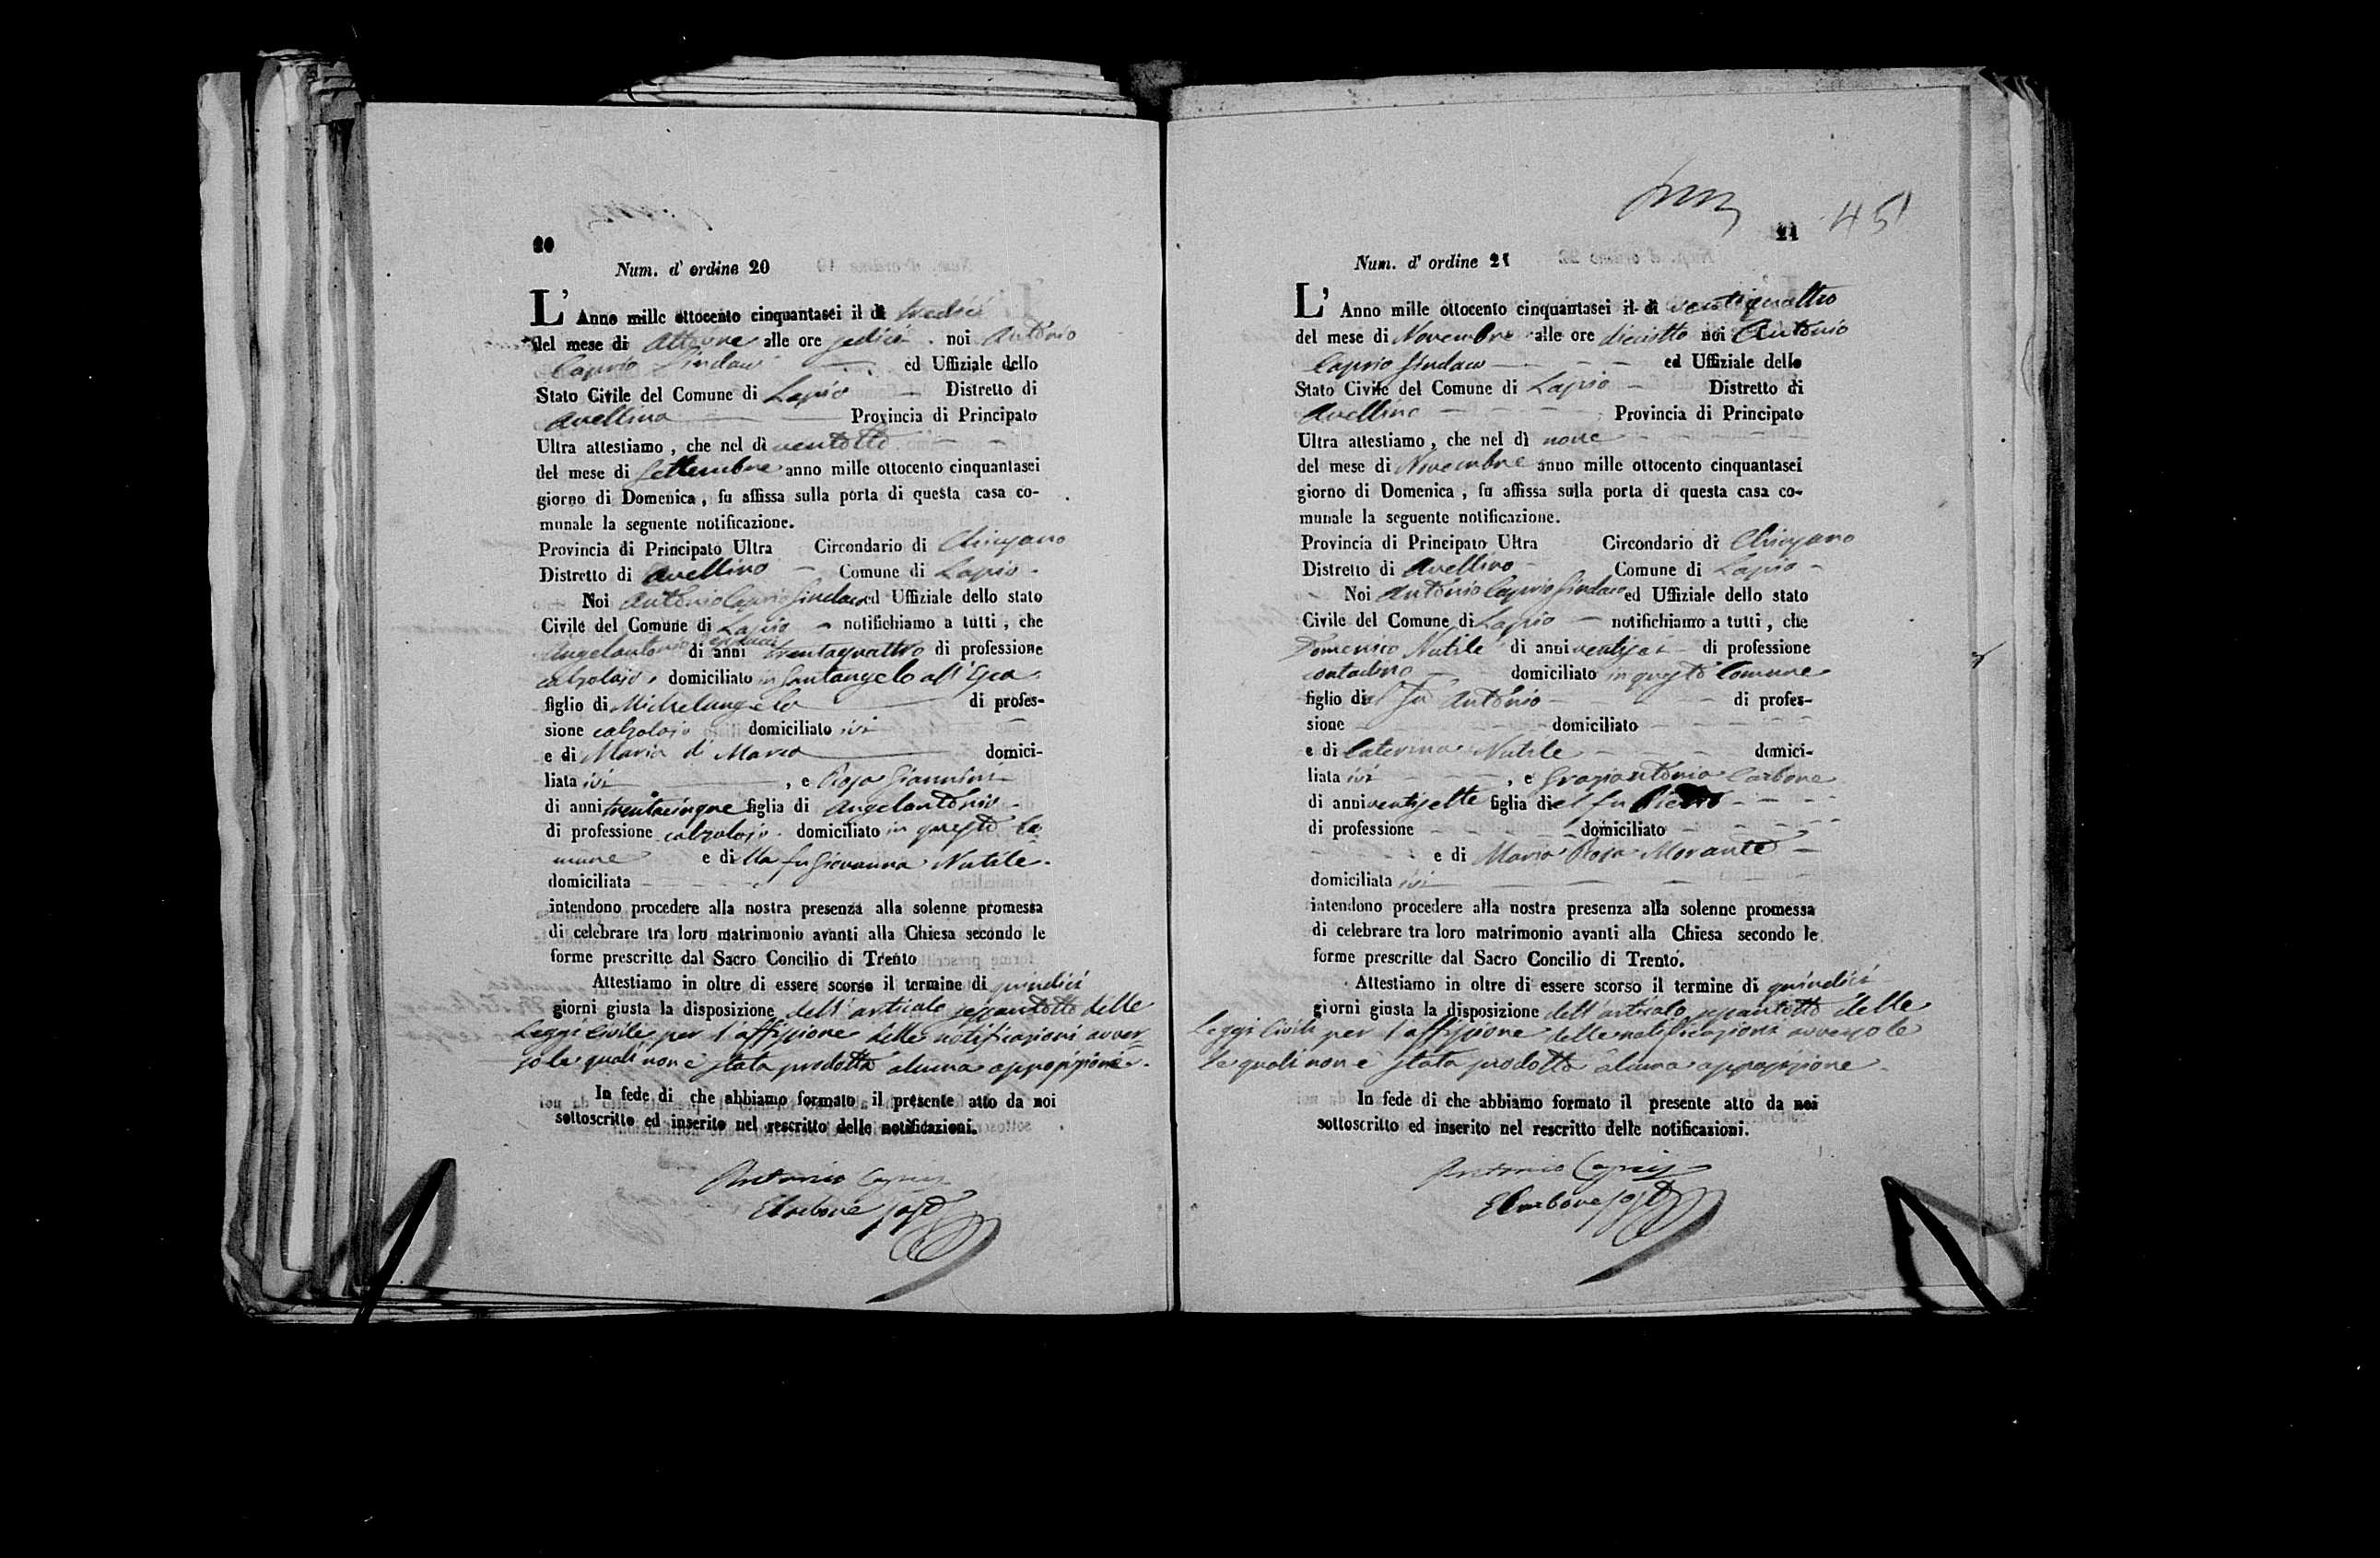 20
Num. d' ordine 20
L' Anno mille ottocento cinquantasei il dì tredici
del mese di Ottobre alle ore sedici noi Antonio
Caprio Sindaco ed Uffiziale dello
Stato Civile del Comune di Lapio Distretto di
Avellino Provincia di Principato
Ultra attestiamo, che nel dì ventotto
del mese di Settembre anno mille ottocento cinquantasei
giorno di Domenica, fu affissa sulla porta di questa casa co-
munale la seguente notificazione.
Provincia di Principato Ultra Circondario di Chiusano
Distretto di Avellino Comune di Lapio
Noi Antonio Caprio Sindaco ed Uffiziale dello stato
Civile del Comune di Lapio notifichiamo a tutti, che
Angelantonio di anni trentaquattro di professione
calzolajo domiciliato in Santangelo all'Esca
figlio di Michelangelo di profes-
sione calzolajo domiciliato ivi
e di Maria di Marco domici-
liata ivi, e Rosa Giannini
di anni trentacinque figlia di Angelantonio
di professione calzolajo domiciliato in questo Co-
mune e di lla fu Giovanna Nutile
domiciliata
intendono procedere alla nostra presenza alla solenne promessa
di celebrare tra loro matrimonio avanti alla Chiesa secondo le
forme prescritte dal Sacro Concilio di Trento
Attestiamo in oltre di essere scorso il termine di quindici
giorni giusta la disposizione dell'articolo sessantotto delle
Leggi Civili per l'affissione delle notificazioni avver-
so le quali non è stata prodotta alcuna opposizione.
In fede di che abbiamo formato il presente atto da noi
sottoscritto ed inserito nel rescritto delle notificazioni.
Antonio Caprio
E Carbone
21 451
Num. d' ordine 21
L' Anno mille ottocento cinquantasei il dì ventiquattro
del mese di Novembre alle ore diciotto noi Antonio
Caprio Sindaco ed Uffiziale dello
Stato Civile del Comune di Lapio Distretto di
Avellino Provincia di Principato
Ultra attestiamo, che nel dì nove
del mese di Novembre anno mille ottocento cinquantasei
giorno di Domenica, fu affissa sulla porta di questa casa co-
munale la seguente notificazione.
Provincia di Principato Ultra Circondario di Chiusano
Distretto di Avellino Comune di Lapio
Noi Antonio Caprio Sindaco ed Uffiziale dello stato
Civile del Comune di Lapio notifichiamo a tutti, che
Domenico Nutile di anni ventisei di professione
contadino domiciliato in questo Comune
figlio del fu Antonio di profes-
sione domiciliato
e di Caterina Nutile domici-
liata ivi, e Graziantonia Carbone
di anni ventisette figlia di el fu Pietro
di professione domiciliato
e di Maria Rosa Morante
domiciliata ivi
intendono procedere alla nostra presenza alla solenne promessa
di celebrare tra loro matrimonio avanti alla Chiesa secondo le
forme prescritte dal Sacro Concilio di Trento.
Attestiamo in oltre di essere scorso il termine di quindici
giorni giusta la disposizione dell'articolo sessantotto delle
Leggi Civili per l'affissione delle notificazioni avverso le
le quali non è stata prodotta alcuna opposizione.
In fede di che abbiamo formato il presente atto da noi
sottoscritto ed inserito nel rescritto delle notificazioni.
Antonio Caprio
E Carbone